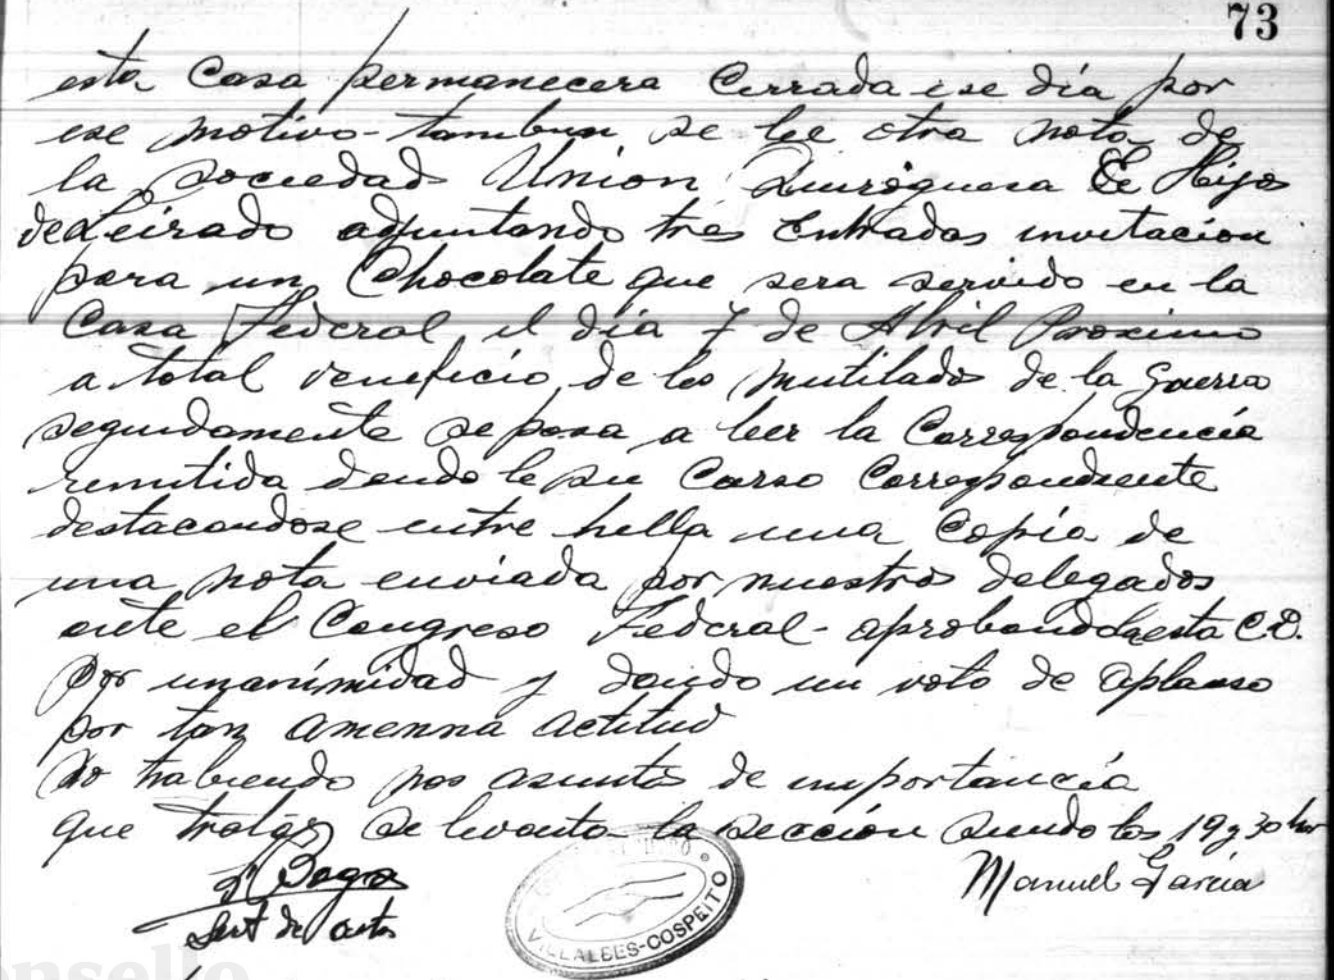 73
esta Casa permanecera Cerrada ese día por
ese motivo - tambien se lee otra nota de
la sociedad Union Quiroguesa E Hijos
de Leirado adjuntando tres Entradas invitacion
para un Chocolate que sera servido en la
Casa Federal el día 7 de Abril Proximo
a total veneficio de los mutilados de la Guerra
seguidamente se pasa a leer la Correspondencía
remitida dando le su Curso Correspondiente
destacandose entre hella una Copía de
una nota enviada por nuestros delegados
ante el Congreso Federal - aprobandola esta C.D.
Por unanímidad y dando un voto de aplauso
por tan amenna actitud
No habiendo mas asuntos de importancía
que tratar se levanta la seccion siendo las 19 y 30 hr
Manuel García
de actas
VILLALBES-COSPEITO
onsello